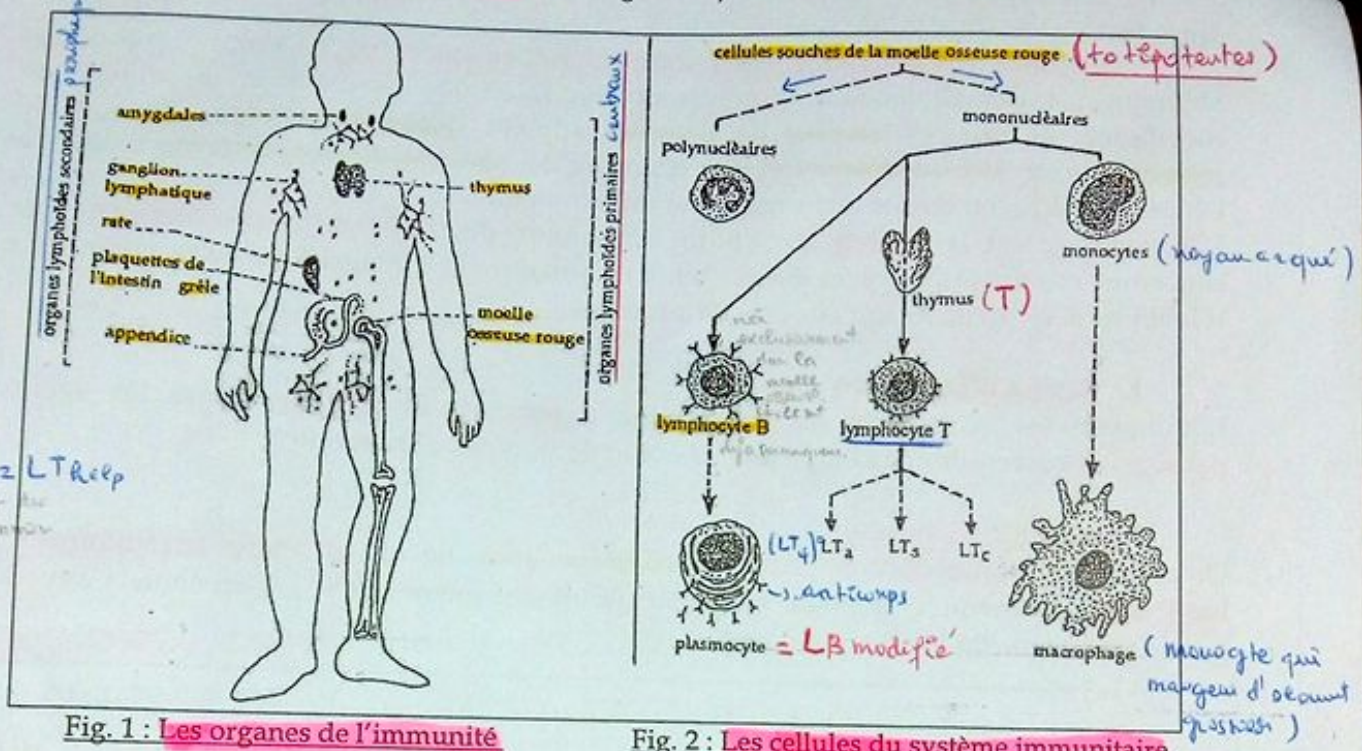 organes lymphoïdes secondaires
amygdales
ganglion
lymphatique
rate
plaquettes de
l'intestin grêle
appendice
thymus
moelle
osseuse rouge
organes lymphoïdes primaires centraux
= LT help
Fig. 1 : Les organes de l'immunité
cellules souches de la moelle osseuse rouge (totipotentes)
mononucléaires
polynucléaires
monocytes (noyau arqué)
thymus (T)
née
exclusivement
lymphocyte B
lymphocyte T
(LT4) LTa
LTs
LTc
→ anticorps
plasmocyte = LB modifié
macrophage (monocyte qui
Fig. 2 : Les cellules du système immunitaire